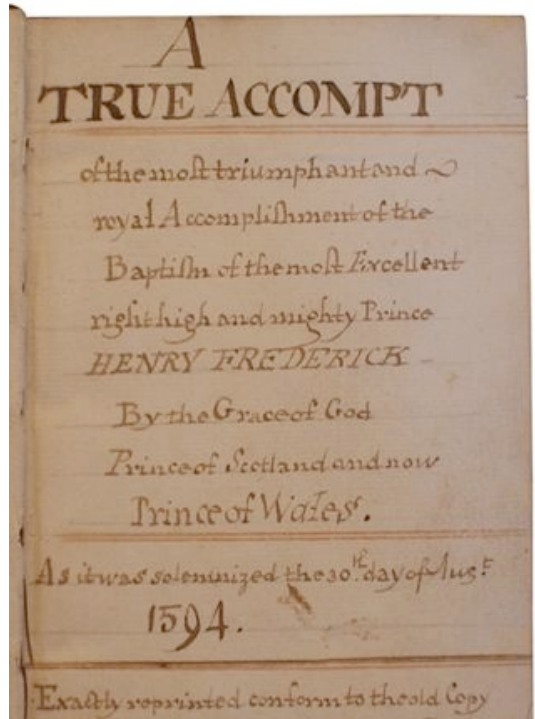 A
TRUE ACCOMPT
of the most triumphant and
royal Accomplishment of the
Baptism of the most Excellent
right high and mighty Prince
HENRY FREDERICK
By the Grace of God
Prince of Scotland and now
Prince of Wales.
As it was solemnized the 30th. day of Augt.
1594.
Exactly reprinted conform to the old Copy